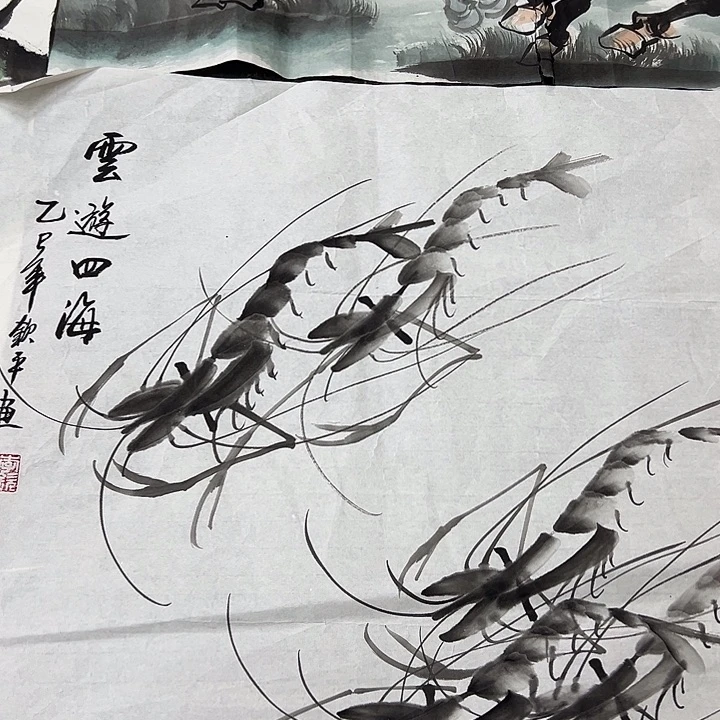 雲遊四海
乙巳年欽平画